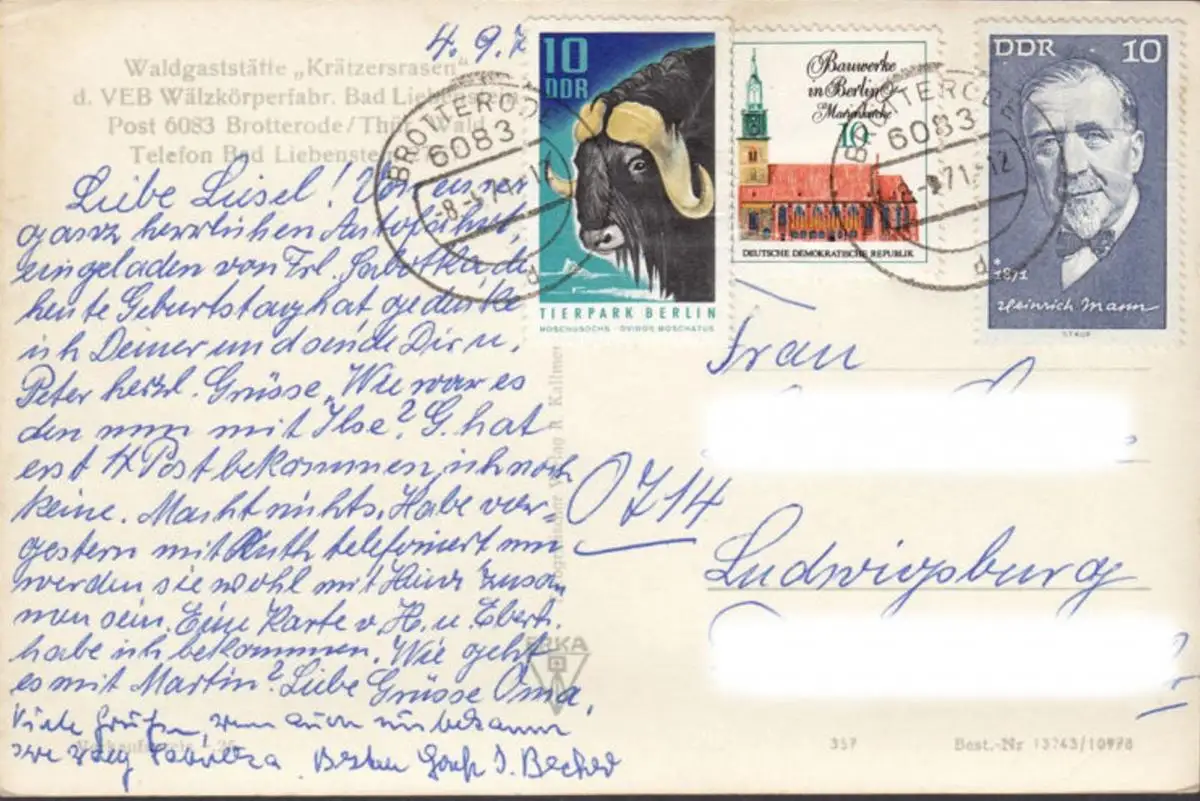 4. 9. 7
Waldgaststätte „Krätzersrasen“
d. VEB Wälzkörperfabr. Bad Liebenstein
Post 6083 Brotterode/Thür. Wald
Telefon Bad Liebenstein
Liebe Liesel! Von einer
ganz herrlichen Autofahrt,
eingeladen von Frl. Sabottka, di
heute Geburtstag hat gedenke
ich Deiner und sende Dir u.
Peter herzl. Grüsse. Wie war es
den nun mit Ilse? G. hat
erst 1x Post bekommen, ich noch
keine. Macht nichts. Habe vor
gestern mit Ruth telefoniert nun
werden sie wohl mit Heinz zusa
men sein. Eine Karte v. H. u. Eberh.
habe ich bekommen. Wie geht
es mit Martin? Liebe Grüsse Oma,
Viele Grüße, wenn auch unbekann
Besten Gruß I.
10
DDR
TIERPARK BERLIN
MOSCHUSOCHS · OVIBOS MOSCHATUS
Bauwerke
in Berlin
Marienkirche
10
DEUTSCHE DEMOKRATISCHE REPUBLIK
DDR 10
* 1871
Heinrich Mann
BROTTERODE
6083
-8.-9.71-12
d
BROTTERODE
6083
-8.-9.71-12
d
Frau
0714
Ludwigsburg
ERKA
357
Best.-Nr 13743/10978